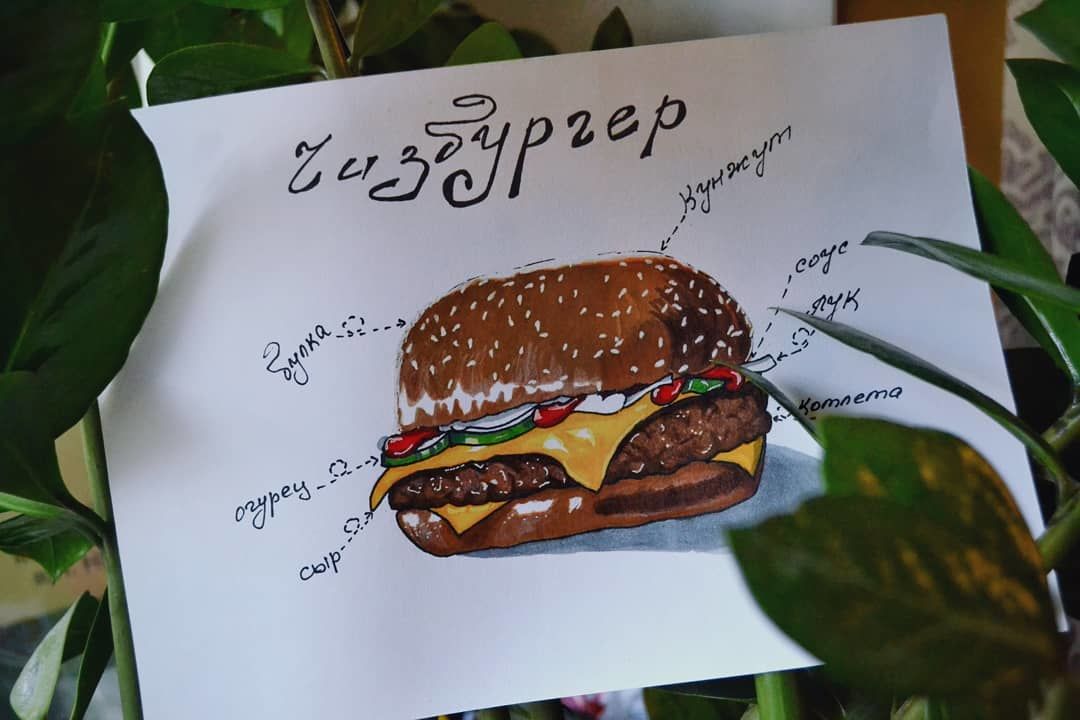 Чизбургер
кунжут
соус
лук
булка
котлета
огурец
сыр